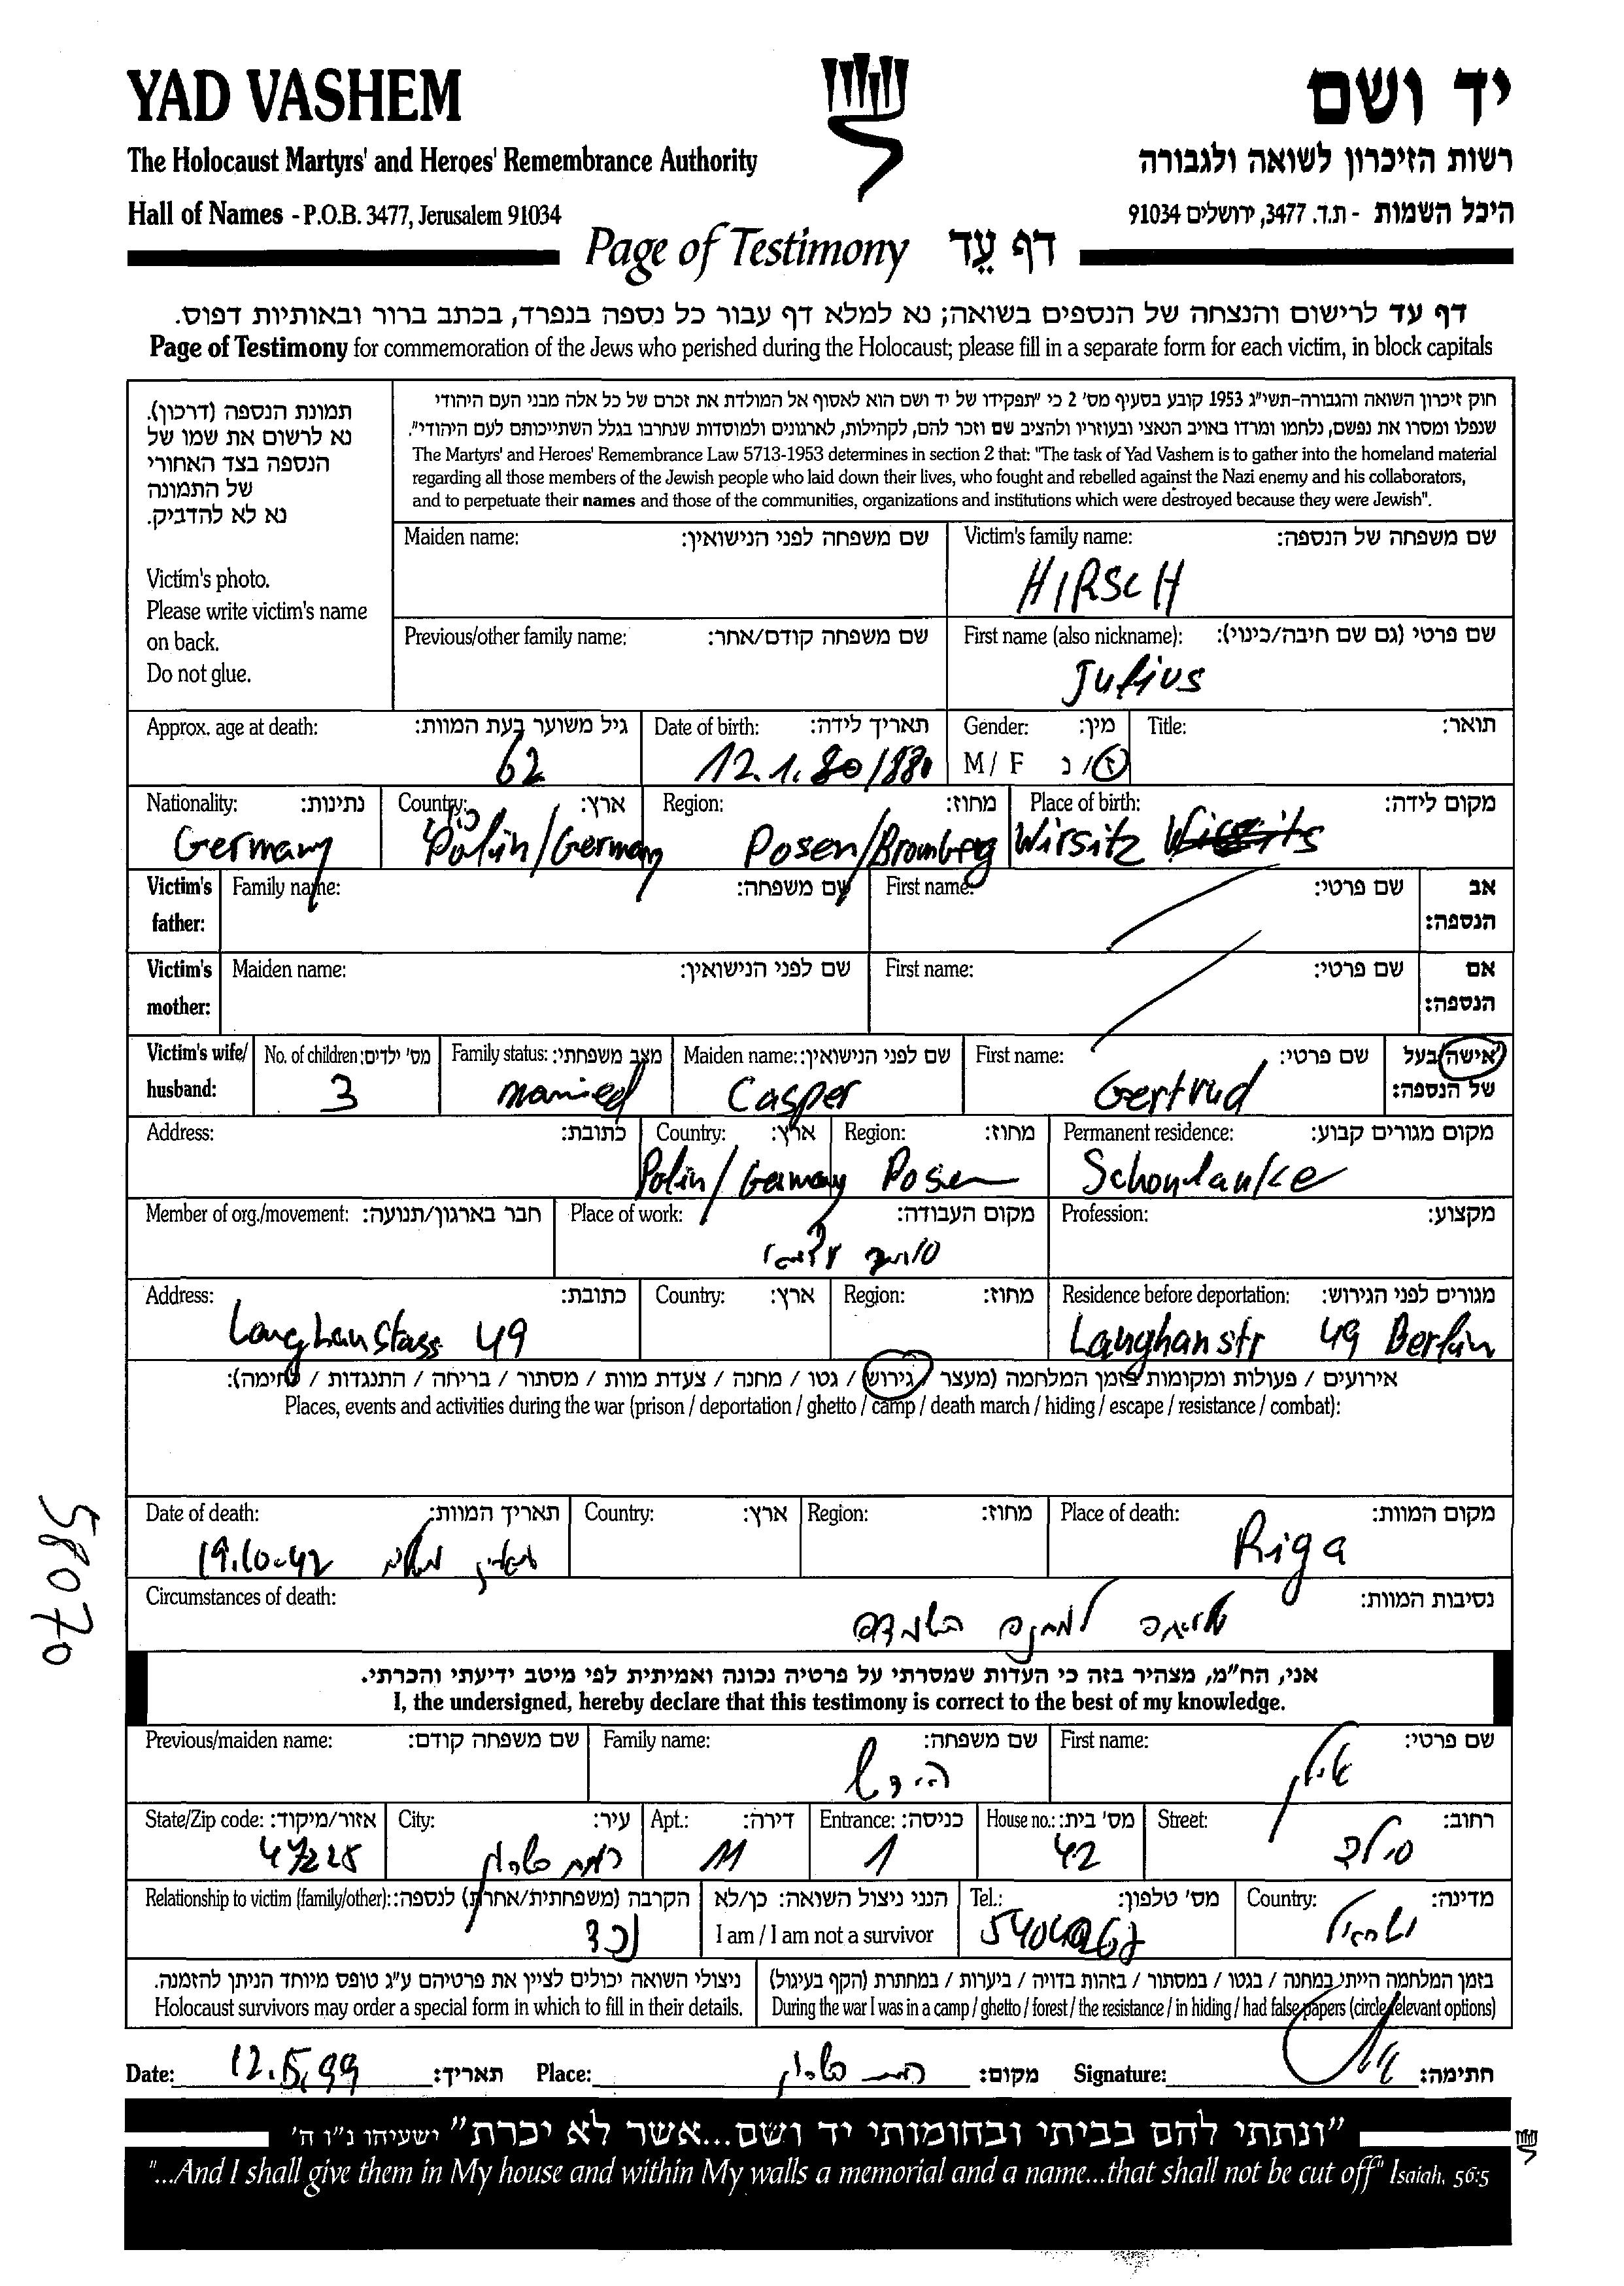 YAD VASHEM
יד ושם
The Holocaust Martyrs' and Heroes' Remembrance Authority
רשות הזיכרון לשואה ולגבורה
Hall of Names - P.O.B. 3477, Jerusalem 91034
היכל השמות - ת.ד. 3477, ירושלים 91034
Page of Testimony דף עֵד
דף עד לרישום והנצחה של הנספים בשואה; נא למלא דף עבור כל נספה בנפרד, בכתב ברור ובאותיות דפוס.
Page of Testimony for commemoration of the Jews who perished during the Holocaust; please fill in a separate form for each victim, in block capitals
תמונת הנספה (דרכון).
נא לרשום את שמו של
הנספה בצד האחורי
של התמונה
נא לא להדביק.
Victim's photo.
Please write victim's name
on back.
Do not glue.
חוק זיכרון השואה והגבורה-תשי"ג 1953 קובע בסעיף מס' 2 כי "תפקידו של יד ושם הוא לאסוף אל המולדת את זכרם של כל אלה מבני העם היהודי
שנפלו ומסרו את נפשם, נלחמו ומרדו באויב הנאצי ובעוזריו ולהציב שם וזכר להם, לקהילות, לארגונים ולמוסדות שנחרבו בגלל השתייכותם לעם היהודי".
The Martyrs' and Heroes' Remembrance Law 5713-1953 determines in section 2 that: "The task of Yad Vashem is to gather into the homeland material
regarding all those members of the Jewish people who laid down their lives, who fought and rebelled against the Nazi enemy and his collaborators,
and to perpetuate their names and those of the communities, organizations and institutions which were destroyed because they were Jewish".
Maiden name: שם משפחה לפני הנישואין: Victim's family name: שם משפחה של הנספה:
HIRSCH
Previous/other family name: שם משפחה קודם/אחר: First name (also nickname): שם פרטי (גם שם חיבה/כינוי):
Julius
Approx. age at death: גיל משוער בעת המוות: Date of birth: תאריך לידה: Gender: מין: Title: תואר:
62 12.1.80/880 M / F ז / נ
Nationality: נתינות: Country: ארץ: Region: מחוז: Place of birth: מקום לידה:
Germany Polin/Germany Posen/Bromberg Wirsitz
Victim's father: Family name: שם משפחה: First name: שם פרטי: אב הנספה:
Victim's mother: Maiden name: שם לפני הנישואין: First name: שם פרטי: אם הנספה:
Victim's wife/ husband: No. of children: מס' ילדים: Family status: מצב משפחתי: Maiden name: שם לפני הנישואין: First name: שם פרטי: אישה/בעל של הנספה:
3 married Casper Gertrud
Address: כתובת: Country: ארץ: Region: מחוז: Permanent residence: מקום מגורים קבוע:
Polin/Germany Posen Schonlanke
Member of org./movement: חבר בארגון/תנועה: Place of work: מקום העבודה: Profession: מקצוע:
סוחר
Address: כתובת: Country: ארץ: Region: מחוז: Residence before deportation: מגורים לפני הגירוש:
Langhanstass 49 Langhanstr 49 Berlin
אירועים / פעולות ומקומות בזמן המלחמה (מעצר / גירוש / גטו / מחנה / צעדת מוות / מסתור / בריחה / התנגדות / לחימה):
Places, events and activities during the war (prison / deportation / ghetto / camp / death march / hiding / escape / resistance / combat):
Date of death: תאריך המוות: Country: ארץ: Region: מחוז: Place of death: מקום המוות:
19.10.42 Riga
Circumstances of death: נסיבות המוות:
למחנה השמדה
58070
אני, הח"מ, מצהיר בזה כי העדות שמסרתי על פרטיה נכונה ואמיתית לפי מיטב ידיעתי והכרתי.
I, the undersigned, hereby declare that this testimony is correct to the best of my knowledge.
Previous/maiden name: שם משפחה קודם: Family name: שם משפחה: First name: שם פרטי:
הירש אילן
State/Zip code: אזור/מיקוד: City: עיר: Apt.: דירה: Entrance: כניסה: House no.: מס' בית: Street: רחוב:
47225 רמת השרון 11 1 42
Relationship to victim (family/other): הקרבה (משפחתית/אחרת) לנספה: הנני ניצול השואה: כן/לא Tel.: מס' טלפון: Country: מדינה:
נכד I am / I am not a survivor ישראל
ניצולי השואה יכולים לציין את פרטיהם ע"ג טופס מיוחד הניתן להזמנה.
Holocaust survivors may order a special form in which to fill in their details.
בזמן המלחמה הייתי במחנה / בגטו / במסתור / בזהות בדויה / ביערות / במחתרת (הקף בעיגול)
During the war I was in a camp / ghetto / forest / the resistance / in hiding / had false papers (circle relevant options)
Date: 12.5.99 תאריך: Place: רמת השרון מקום: Signature: חתימה:
"ונתתי להם בביתי ובחומותי יד ושם...אשר לא יכרת" ישעיהו נ"ו ה'
"...And I shall give them in My house and within My walls a memorial and a name...that shall not be cut off" Isaiah, 56:5